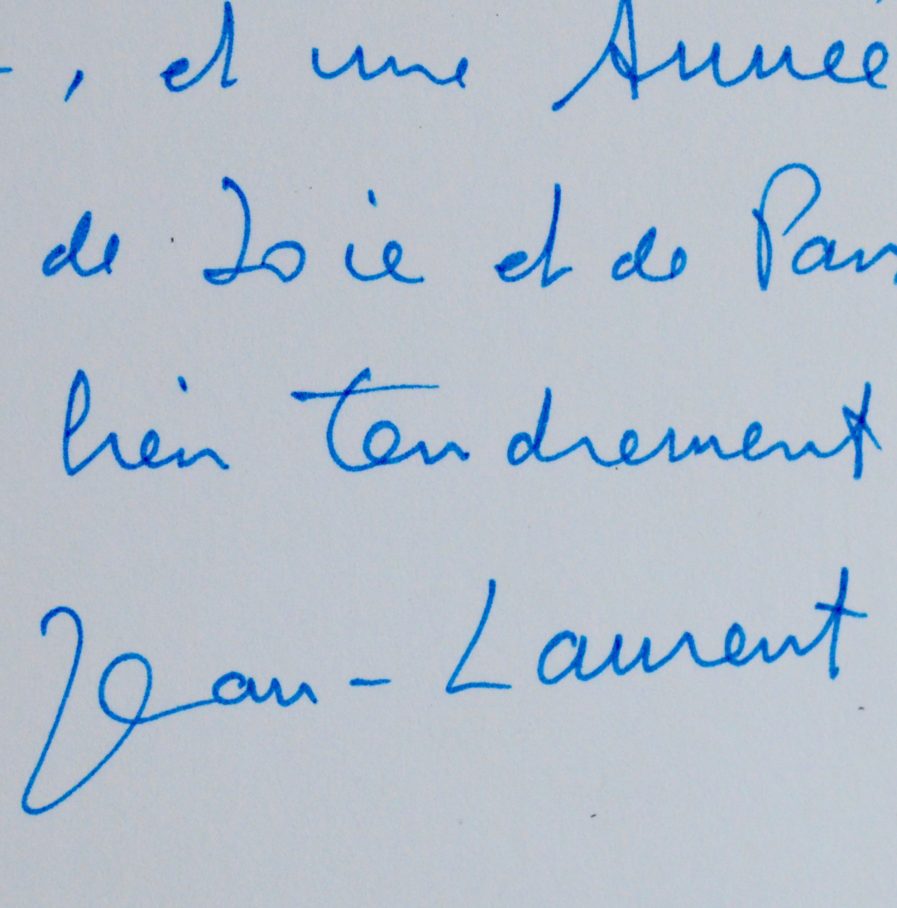 , et une Année
de Joie et de
bien tendrement
Jean-Laurent